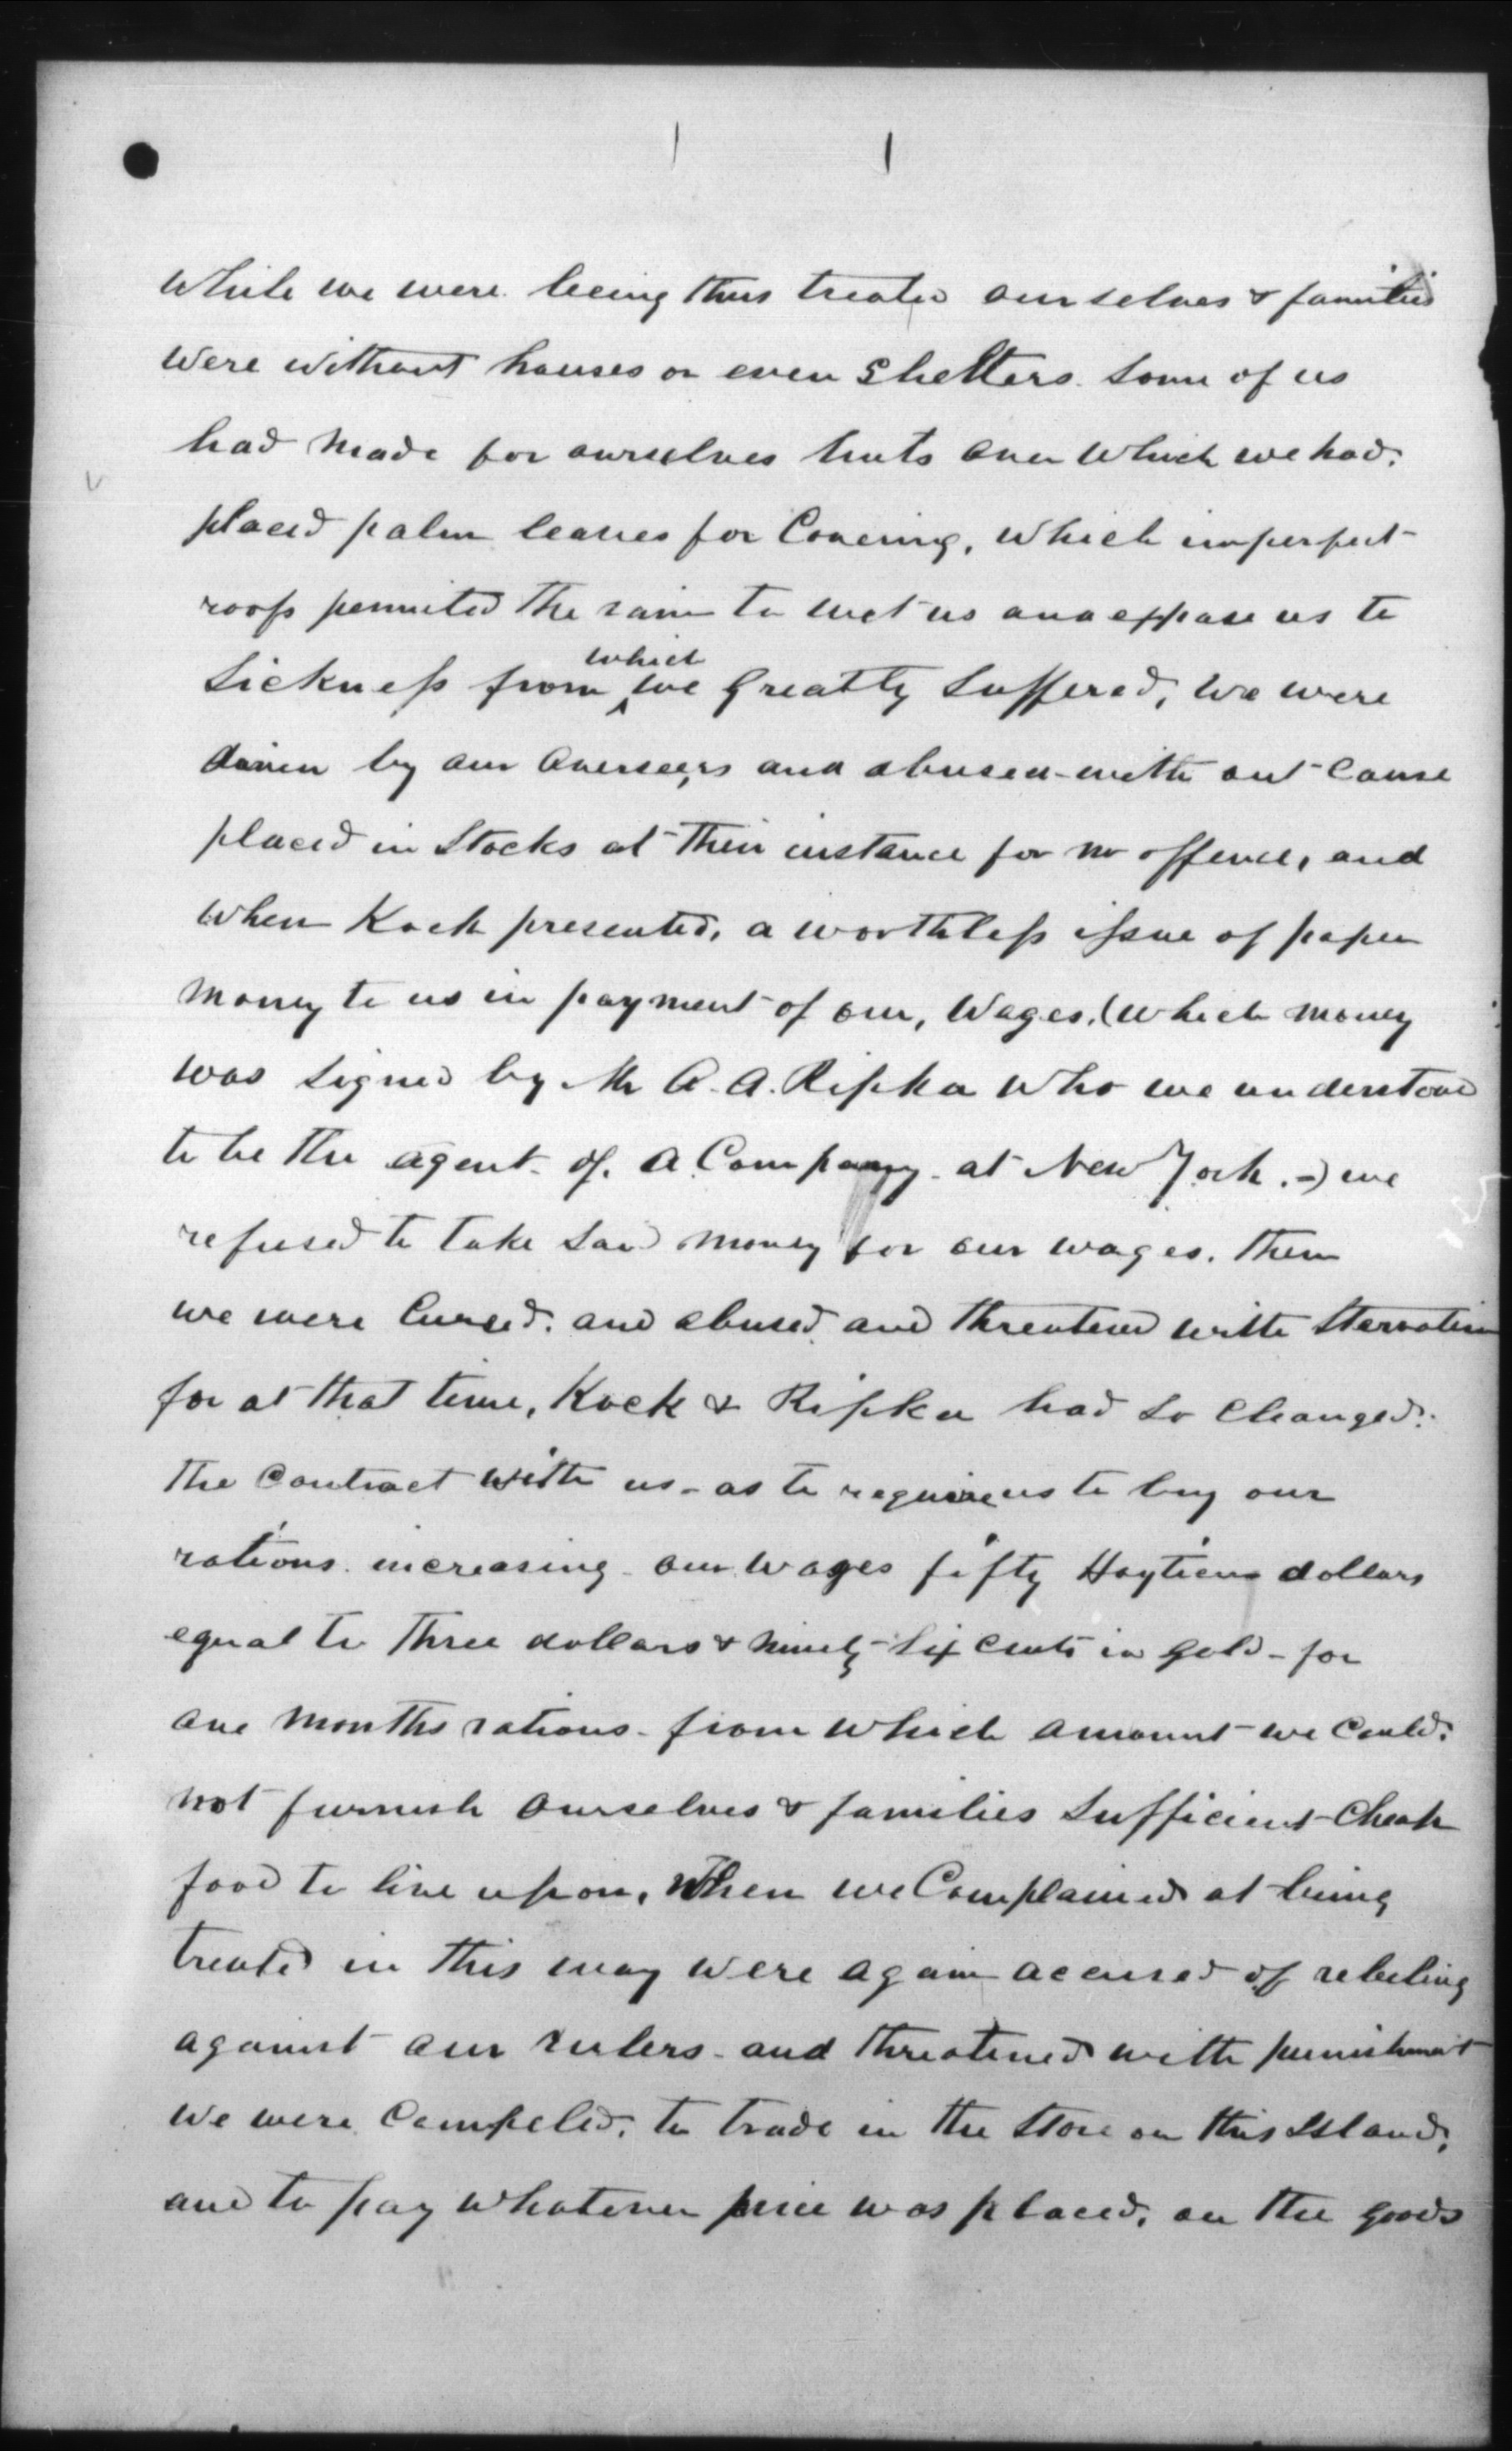 While we were being thus treated ourselves & families
were without houses or even Shelters. Some of us
had made for ourselves huts over which we had.
placed palm leaves for Covering, which imperfect
roofs permited the rain to wet us and expose us to
Sickness from which we greatly suffered, we were
driven by our overseers and abused without Cause
placed in Stocks at their instance for no offence, and
when Kock presented, a worthless issue of paper
money to us in payment of our, Wages, (which money
was signed by Mr A. A. Ripka who we understood
to be the agent of. a Company at New York.-) we
refused to take said money for our wages. Then
we were Cursed. and abused and threatened with Starvation
for at that time, Kock & Ripka had so Changed.
the Contract with us - as to require us to buy our
rations. increasing our wages fifty Haytien dollars
equal to three dollars & ninety Six Cents in gold - for
one months rations - from which amount we Could.
not furnish ourselves & families Sufficient Cheap
food to live upon, When we Complained at being
treated in this way were again accused of rebeling
against our rulers - and threatened with punishment
we were Compeled. to trade in the Store on this Island,
and to pay whatever price was placed, on the goods